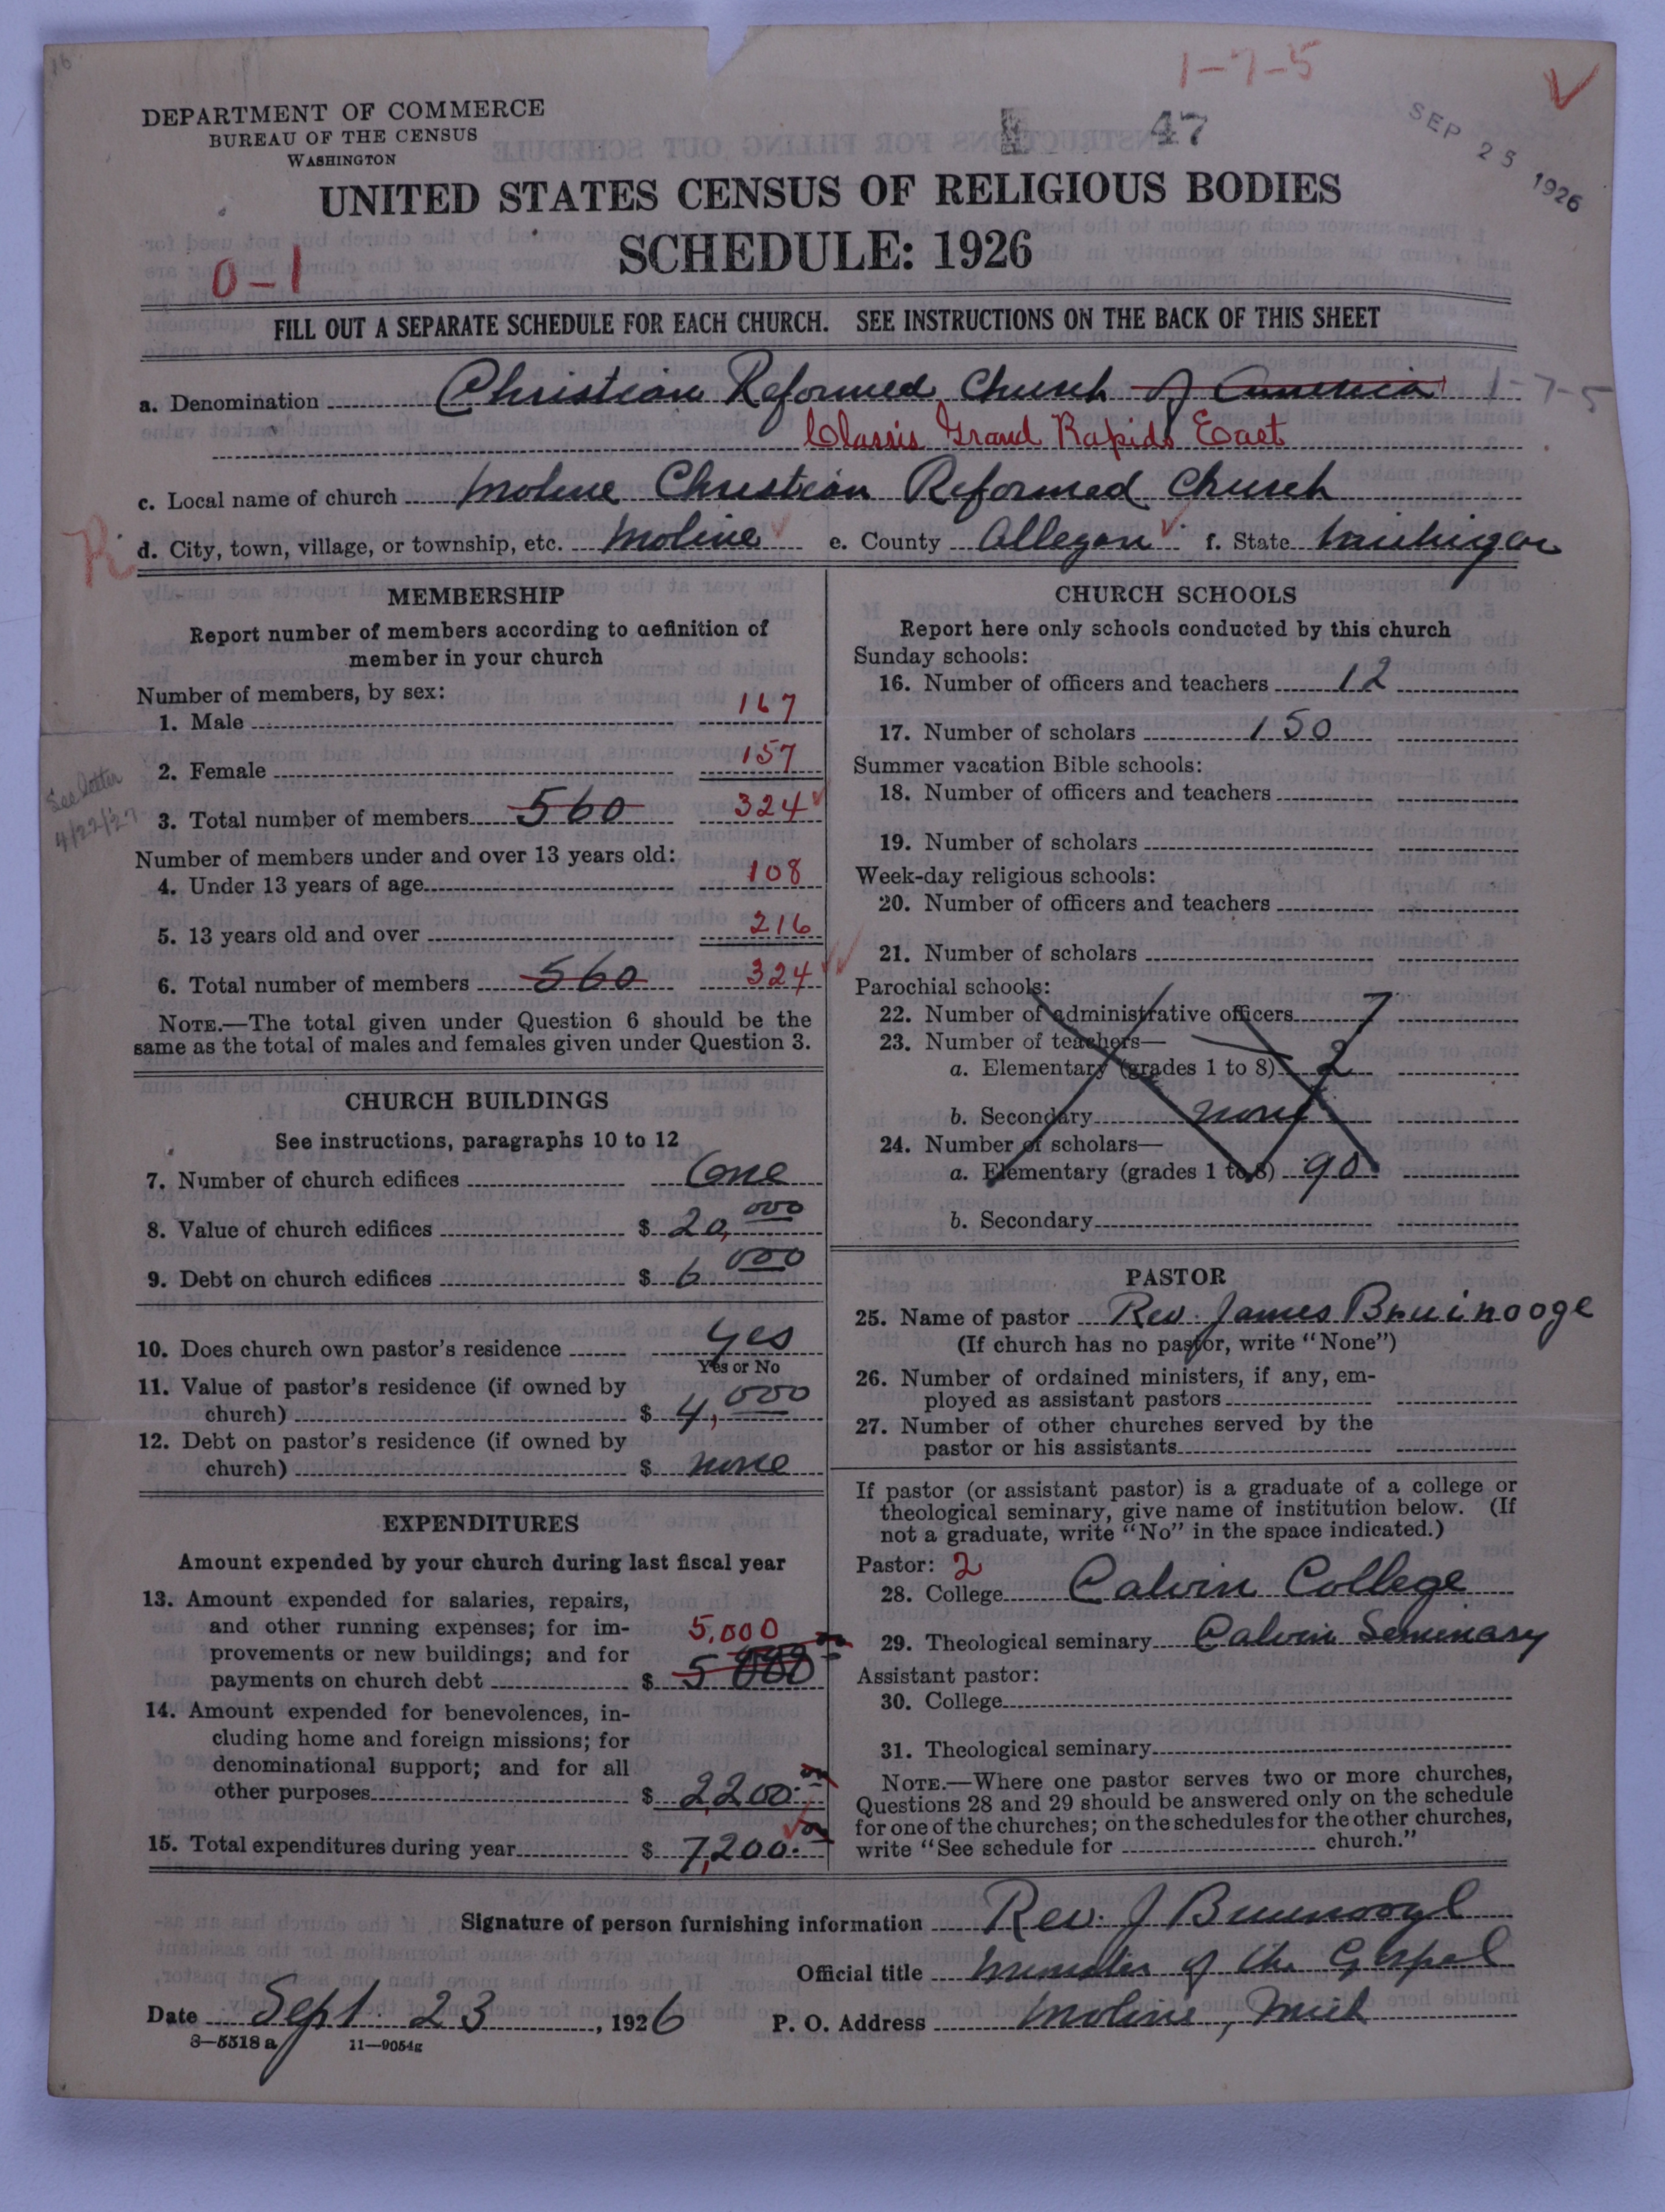 16
1-7-5
DEPARTMENT OF COMMERCE
BUREAU OF THE CENSUS
WASHINGTON
47
SEP 25 1926
UNITED STATES CENSUS OF RELIGIOUS BODIES
SCHEDULE: 1926
0-1
FILL OUT A SEPARATE SCHEDULE FOR EACH CHURCH. SEE INSTRUCTIONS ON THE BACK OF THIS SHEET
a. Denomination Christian Reformed Church of America 1-7-5
Classis Grand Rapids East
c. Local name of church Moline Christian Reformed Church
R
d. City, town, village, or township, etc. Moline e. County Allegan f. State Michigan
MEMBERSHIP
Report number of members according to definition of
member in your church
Number of members, by sex:
1. Male 167
2. Female 157
See letter
4/22/27
3. Total number of members 560 324
Number of members under and over 13 years old:
4. Under 13 years of age 108
5. 13 years old and over 216
6. Total number of members 560 324
NOTE.—The total given under Question 6 should be the
same as the total of males and females given under Question 3.
CHURCH BUILDINGS
See instructions, paragraphs 10 to 12
7. Number of church edifices One
8. Value of church edifices $ 20,000
9. Debt on church edifices $ 6000
10. Does church own pastor's residence yes
Yes or No
11. Value of pastor's residence (if owned by
church) $ 4,000
12. Debt on pastor's residence (if owned by
church) $ none
EXPENDITURES
Amount expended by your church during last fiscal year
13. Amount expended for salaries, repairs,
and other running expenses; for im-
provements or new buildings; and for 5,000
payments on church debt $ 5000
14. Amount expended for benevolences, in-
cluding home and foreign missions; for
denominational support; and for all
other purposes $ 2,200.
15. Total expenditures during year $ 7,200.
CHURCH SCHOOLS
Report here only schools conducted by this church
Sunday schools:
16. Number of officers and teachers 12
17. Number of scholars 150
Summer vacation Bible schools:
18. Number of officers and teachers
19. Number of scholars
Week-day religious schools:
20. Number of officers and teachers
21. Number of scholars
Parochial schools:
22. Number of administrative officers 7
23. Number of teachers—
a. Elementary (grades 1 to 8) 2
b. Secondary none
24. Number of scholars—
a. Elementary (grades 1 to 8) 90
b. Secondary
PASTOR
25. Name of pastor Rev. James Bruinooge
(If church has no pastor, write "None")
26. Number of ordained ministers, if any, em-
ployed as assistant pastors
27. Number of other churches served by the
pastor or his assistants
If pastor (or assistant pastor) is a graduate of a college or
theological seminary, give name of institution below. (If
not a graduate, write "No" in the space indicated.)
Pastor: 2
28. College Calvin College
29. Theological seminary Calvin Seminary
Assistant pastor:
30. College
31. Theological seminary
NOTE.—Where one pastor serves two or more churches,
Questions 28 and 29 should be answered only on the schedule
for one of the churches; on the schedules for the other churches,
write "See schedule for church."
Signature of person furnishing information Rev. J Bruinooge
Official title Minister of the Gospel
Date Sept 23, 1926 P. O. Address Moline, Mich
8—5518 a 11—9054g